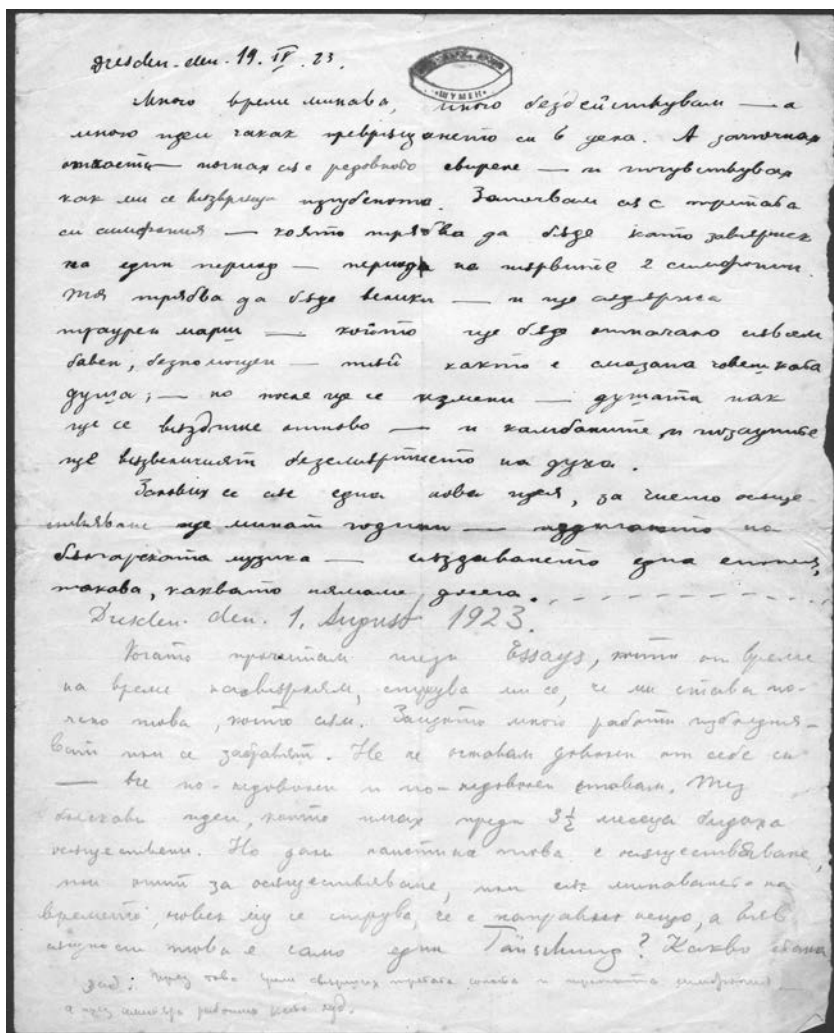 Dresden. den. 19. IV. 23.
1
ШУМЕНЪ
Много време минава, много бездействувам — а
много идеи чакат превръщането си в дела. А започнах
отчасти — почнах със редовното свирене — и почувствувах
как ми се възвръща изгубеното. Започвам със третата
си симфония — която трябва да бъде като завършек
на един период — периода на първите 2 симфонии.
Тя трябва да бъде велика — и ще съдържа
траурен марш — който ще бъде отначало съвсем
бавен, безпомощен — тъй както е смазана човешката
душа; — но после ще се измени — душата пак
ще се въздигне отново — и камбаните, и
ще възвеличият безсмъртието на духа.
се със една нова идея, за чието осъще-
ствяване ще минат години — издигането на
българската музика — създаването една епоха,
такава, каквато нямаме досега.
Dresden. den. 1. August 1923.
Когато прочитам тези Essays, които от време
на време нахвърлям, струва ми се, че ми става по-
леко това, което съм. Защото много работи избледня-
ват или се забравят. Не че оставам доволен от себе си
— все по-недоволен и по-недоволен ставам. Тез
бляскави идеи, които имах преди 3 ½ месеца бидоха
осъществени. Но дали наистина това е осъществяване,
или опит за осъществяване, или със минаването на
времето, човек му се струва, че е направил нещо, а във
същност това е само един Täuschung? Какво стана
през това време свърших третата соната и третата симфония
а през